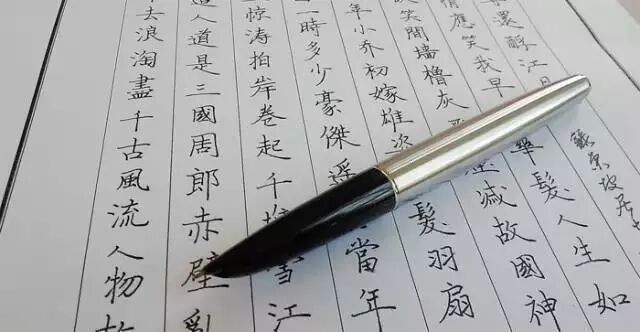 去浪淘盡千古風流人物
人道是三國周郎赤壁亂
驚涛拍岸卷起千堆雪江
一時多少豪傑遥當年
年小乔初嫁雄次髮羽扇
笑間墙櫓灰滅故國神
情應笑我早華髮人生如
還酹江